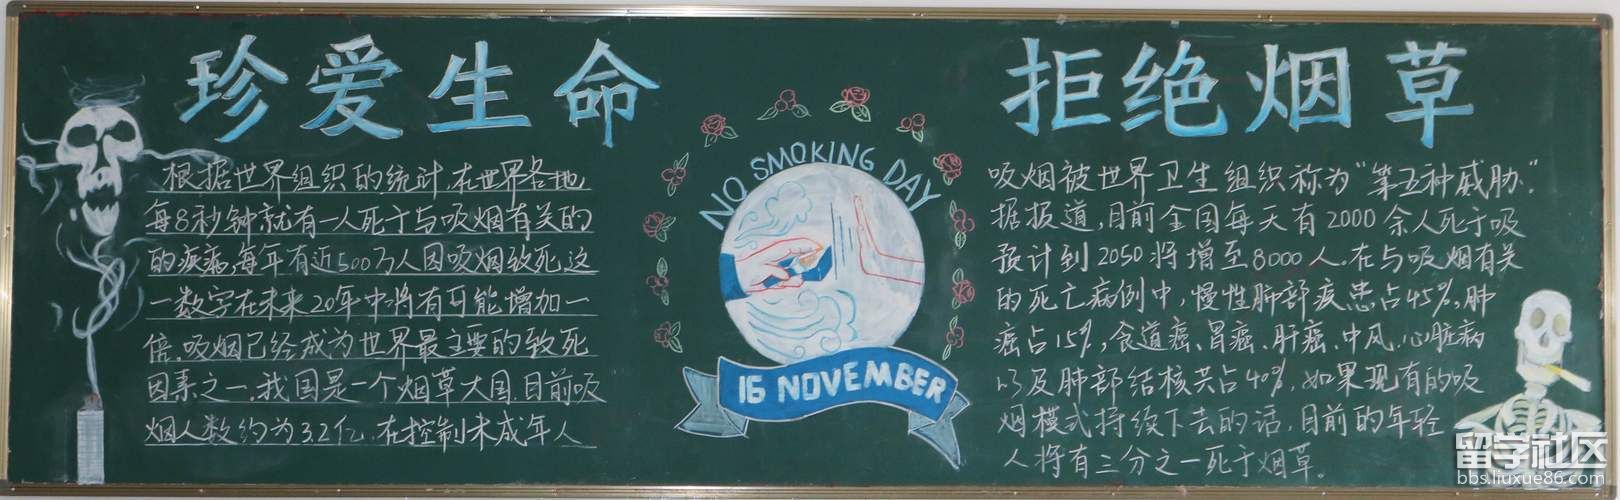 珍爱生命
根据世界组织的统计,在世界各地
每8秒钟就有一人死于与吸烟有关的
的疾病,每年有近500万人因吸烟致死,这
一数字在未来20年中将有可能增加一
倍,吸烟已经成为世界最主要的致死
因素之一,我国是一个烟草大国,目前吸
烟人数约为3.2亿,在控制未成年人
NO SMOKING DAY
16 NOVEMBER
拒绝烟草
吸烟被世界卫生组织称为“第五种威胁”.
据报道,目前全国每天有2000余人死于吸
预计到2050将增至8000人.在与吸烟有关
的死亡病例中,慢性肺部疾患占45%,肺
癌占15%,食道癌、胃癌、肝癌、中风、心脏病
以及肺部结核共占40%,如果现有的吸
烟模式持续下去的话,目前的年轻
人将有三分之一死于烟草。
留学社区
bbs.liuxue86.com